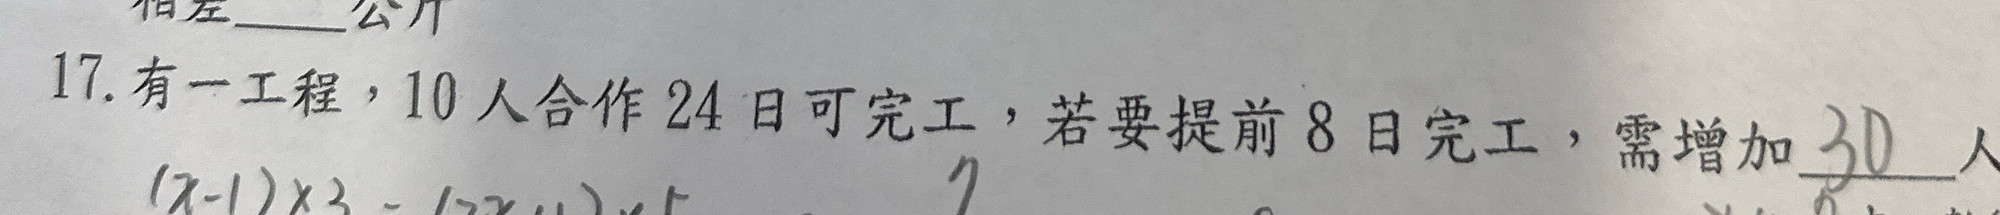 相差____公斤
17. 有一工程，10 人合作 24 日可完工，若要提前 8 日完工，需增加 30 人
(x-1)×3 =